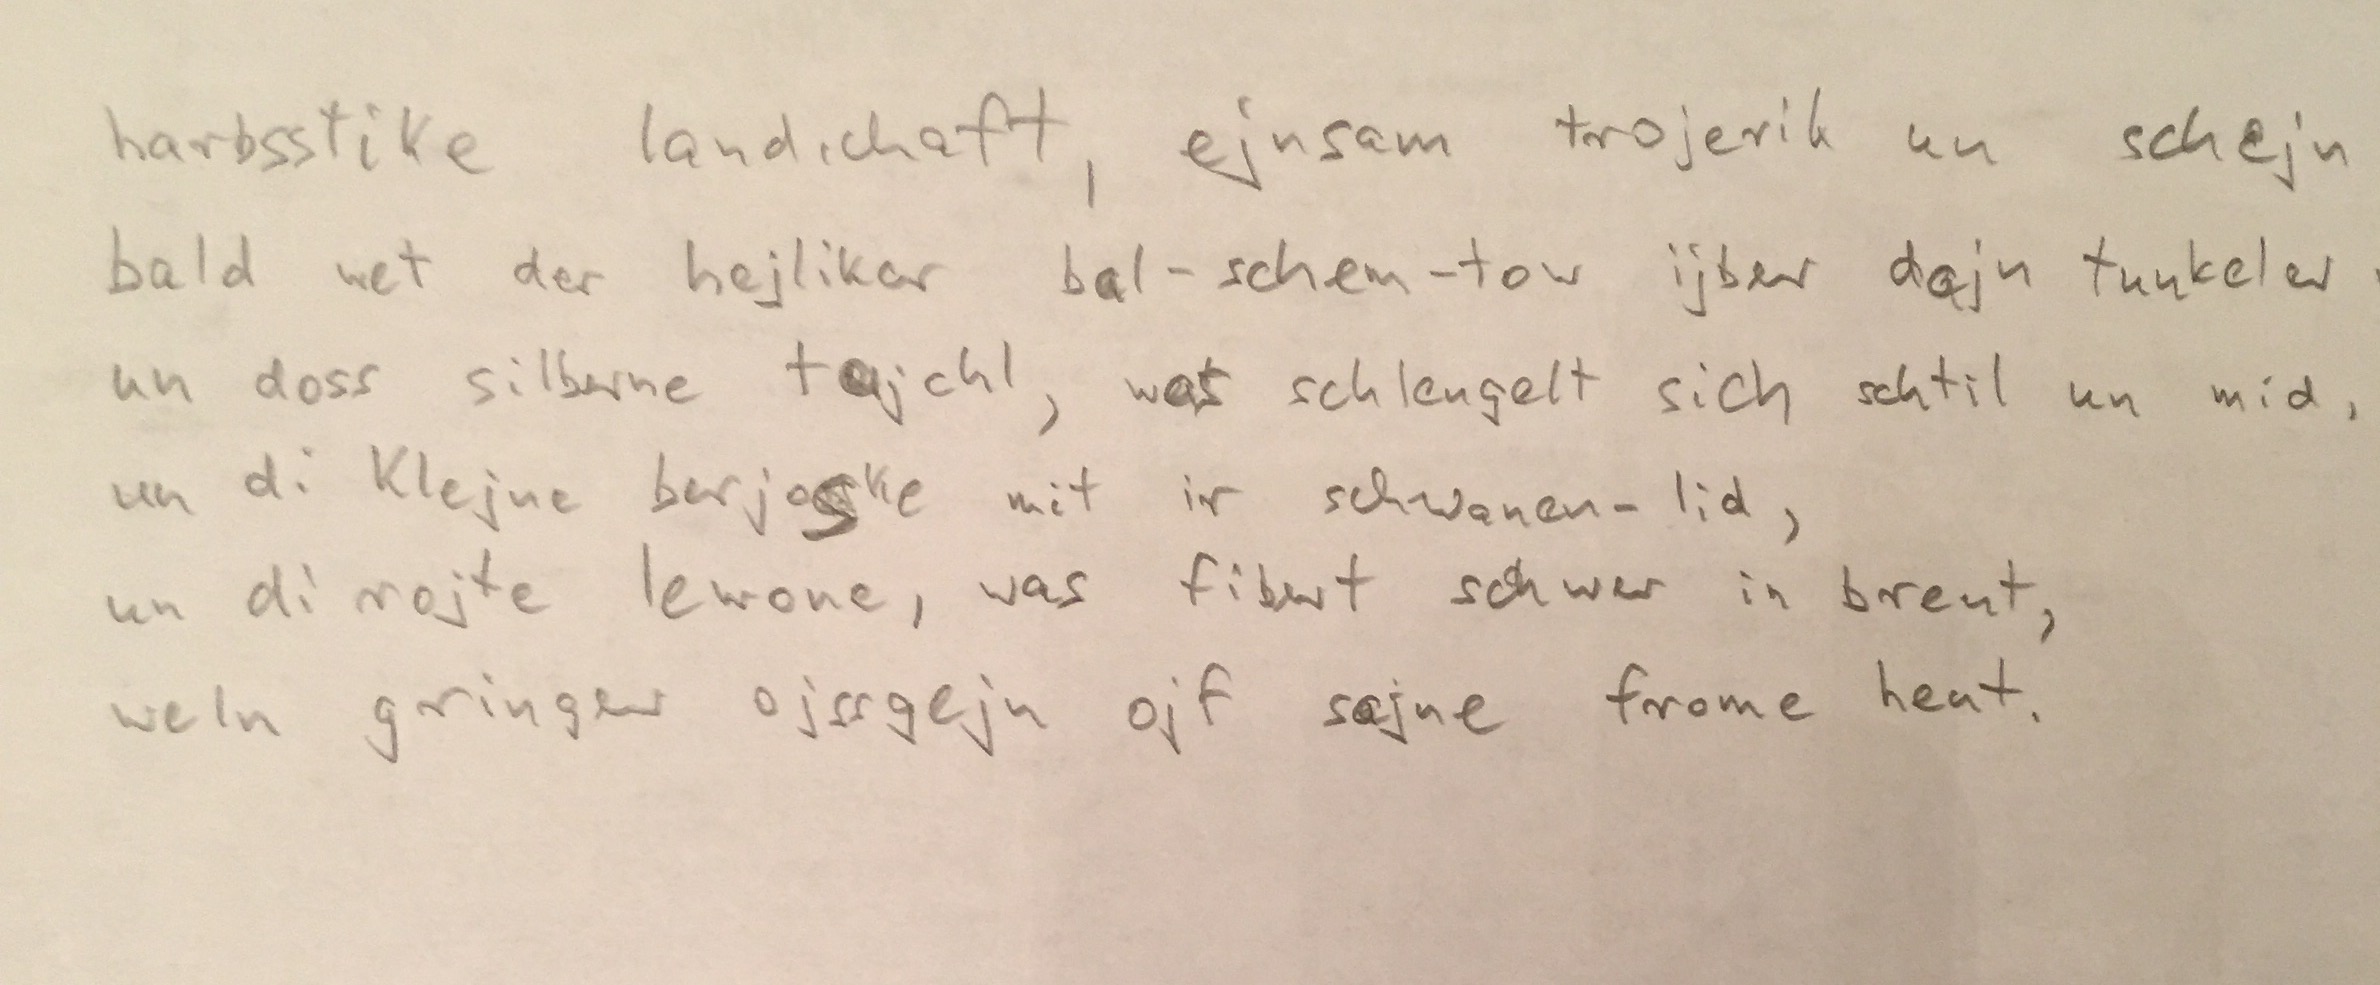 harbsstike landschaft, ejnsam trojerik un schejn
bald wet der hejliker bal-schem-tow ijber dajn tunkeler
un doss silberne tajchl, was schlengelt sich schtil un mid,
un di klejne berjoske mit ir schwanen-lid,
un di rojte lewone, was fibert schwer in brent,
weln gringer ojssgejn ojf sajne frome hent.